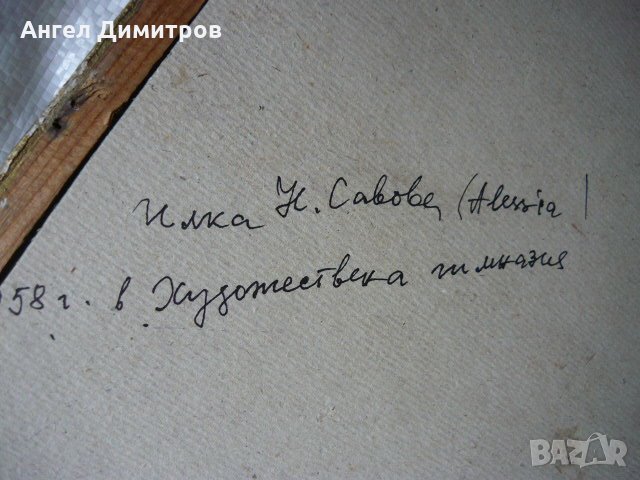 Ангел Димитров
Илка Н. Савова (Alessia)
58 г. в Художествена гимназия
BAZAR